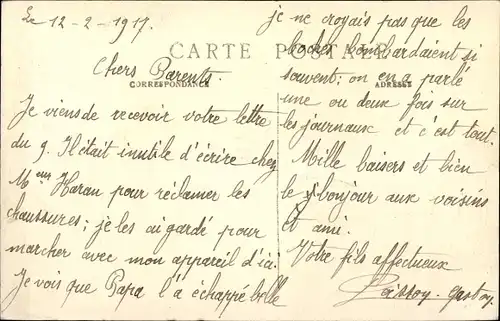 Le 12-2-1917.
CARTE POSTALE
Chers Parents.
CORRESPONDANCE
Je viens de recevoir votre lettre
du 9. Il était inutile d'écrire chez
Meur Haran pour réclamer les
chaussures; je les ai gardé pour
marcher avec mon appareil d'ici.
Je vois que Papa l'a échappé belle
je ne croyais pas que les
boches bombardaient si
souvent: on en a parlé
ADRESSE
une ou deux fois sur
les journaux et c'est tout.
Mille baisers et bien
le bonjour aux voisins
et ami.
Votre fils affectueux